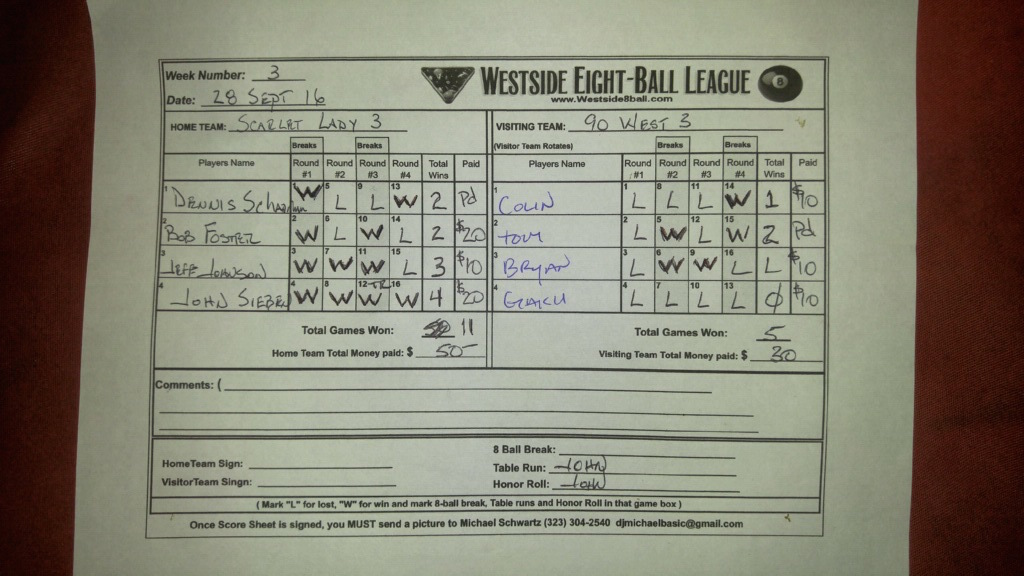 Week Number: 3
WESTSIDE EIGHT-BALL LEAGUE 8
www.Westside8ball.com
Date: 28 SEPT 16
HOME TEAM: SCARLET LADY 3 VISITING TEAM: 90 WEST 3
(Visitor Team Rotates)
Breaks Breaks Breaks Breaks
Players Name Round #1 Round #2 Round #3 Round #4 Total Wins Paid Players Name Round #1 Round #2 Round #3 Round #4 Total Wins Paid
1 DENNIS W 5 L 9 L 13 W 2 Pd 1 COLIN 1 L 8 L 11 L 14 W 1 $10
2 BOB FOSTER 2 W 6 L 10 W 14 L 2 $20 2 TOM 2 L 5 W 12 L 15 W 2 Pd
3 JEFF JOHNSON 3 W 7 W 11 W 15 L 3 $10 3 BRYAN 3 L 6 W 9 W 16 L L $10
4 JOHN SIEBEN 4 W 8 W 12 TR W 16 W 4 $20 4 4 L 7 L 10 L 13 L 0 $10
Total Games Won: 11 Total Games Won: 5
Home Team Total Money paid: $ 50- Visiting Team Total Money paid: $ 30
Comments: (
8 Ball Break:
HomeTeam Sign: Table Run: JOHN
VisitorTeam Singn: Honor Roll: JOHN
( Mark "L" for lost, "W" for win and mark 8-ball break, Table runs and Honor Roll in that game box )
Once Score Sheet is signed, you MUST send a picture to Michael Schwartz (323) 304-2540 djmichaelbasic@gmail.com